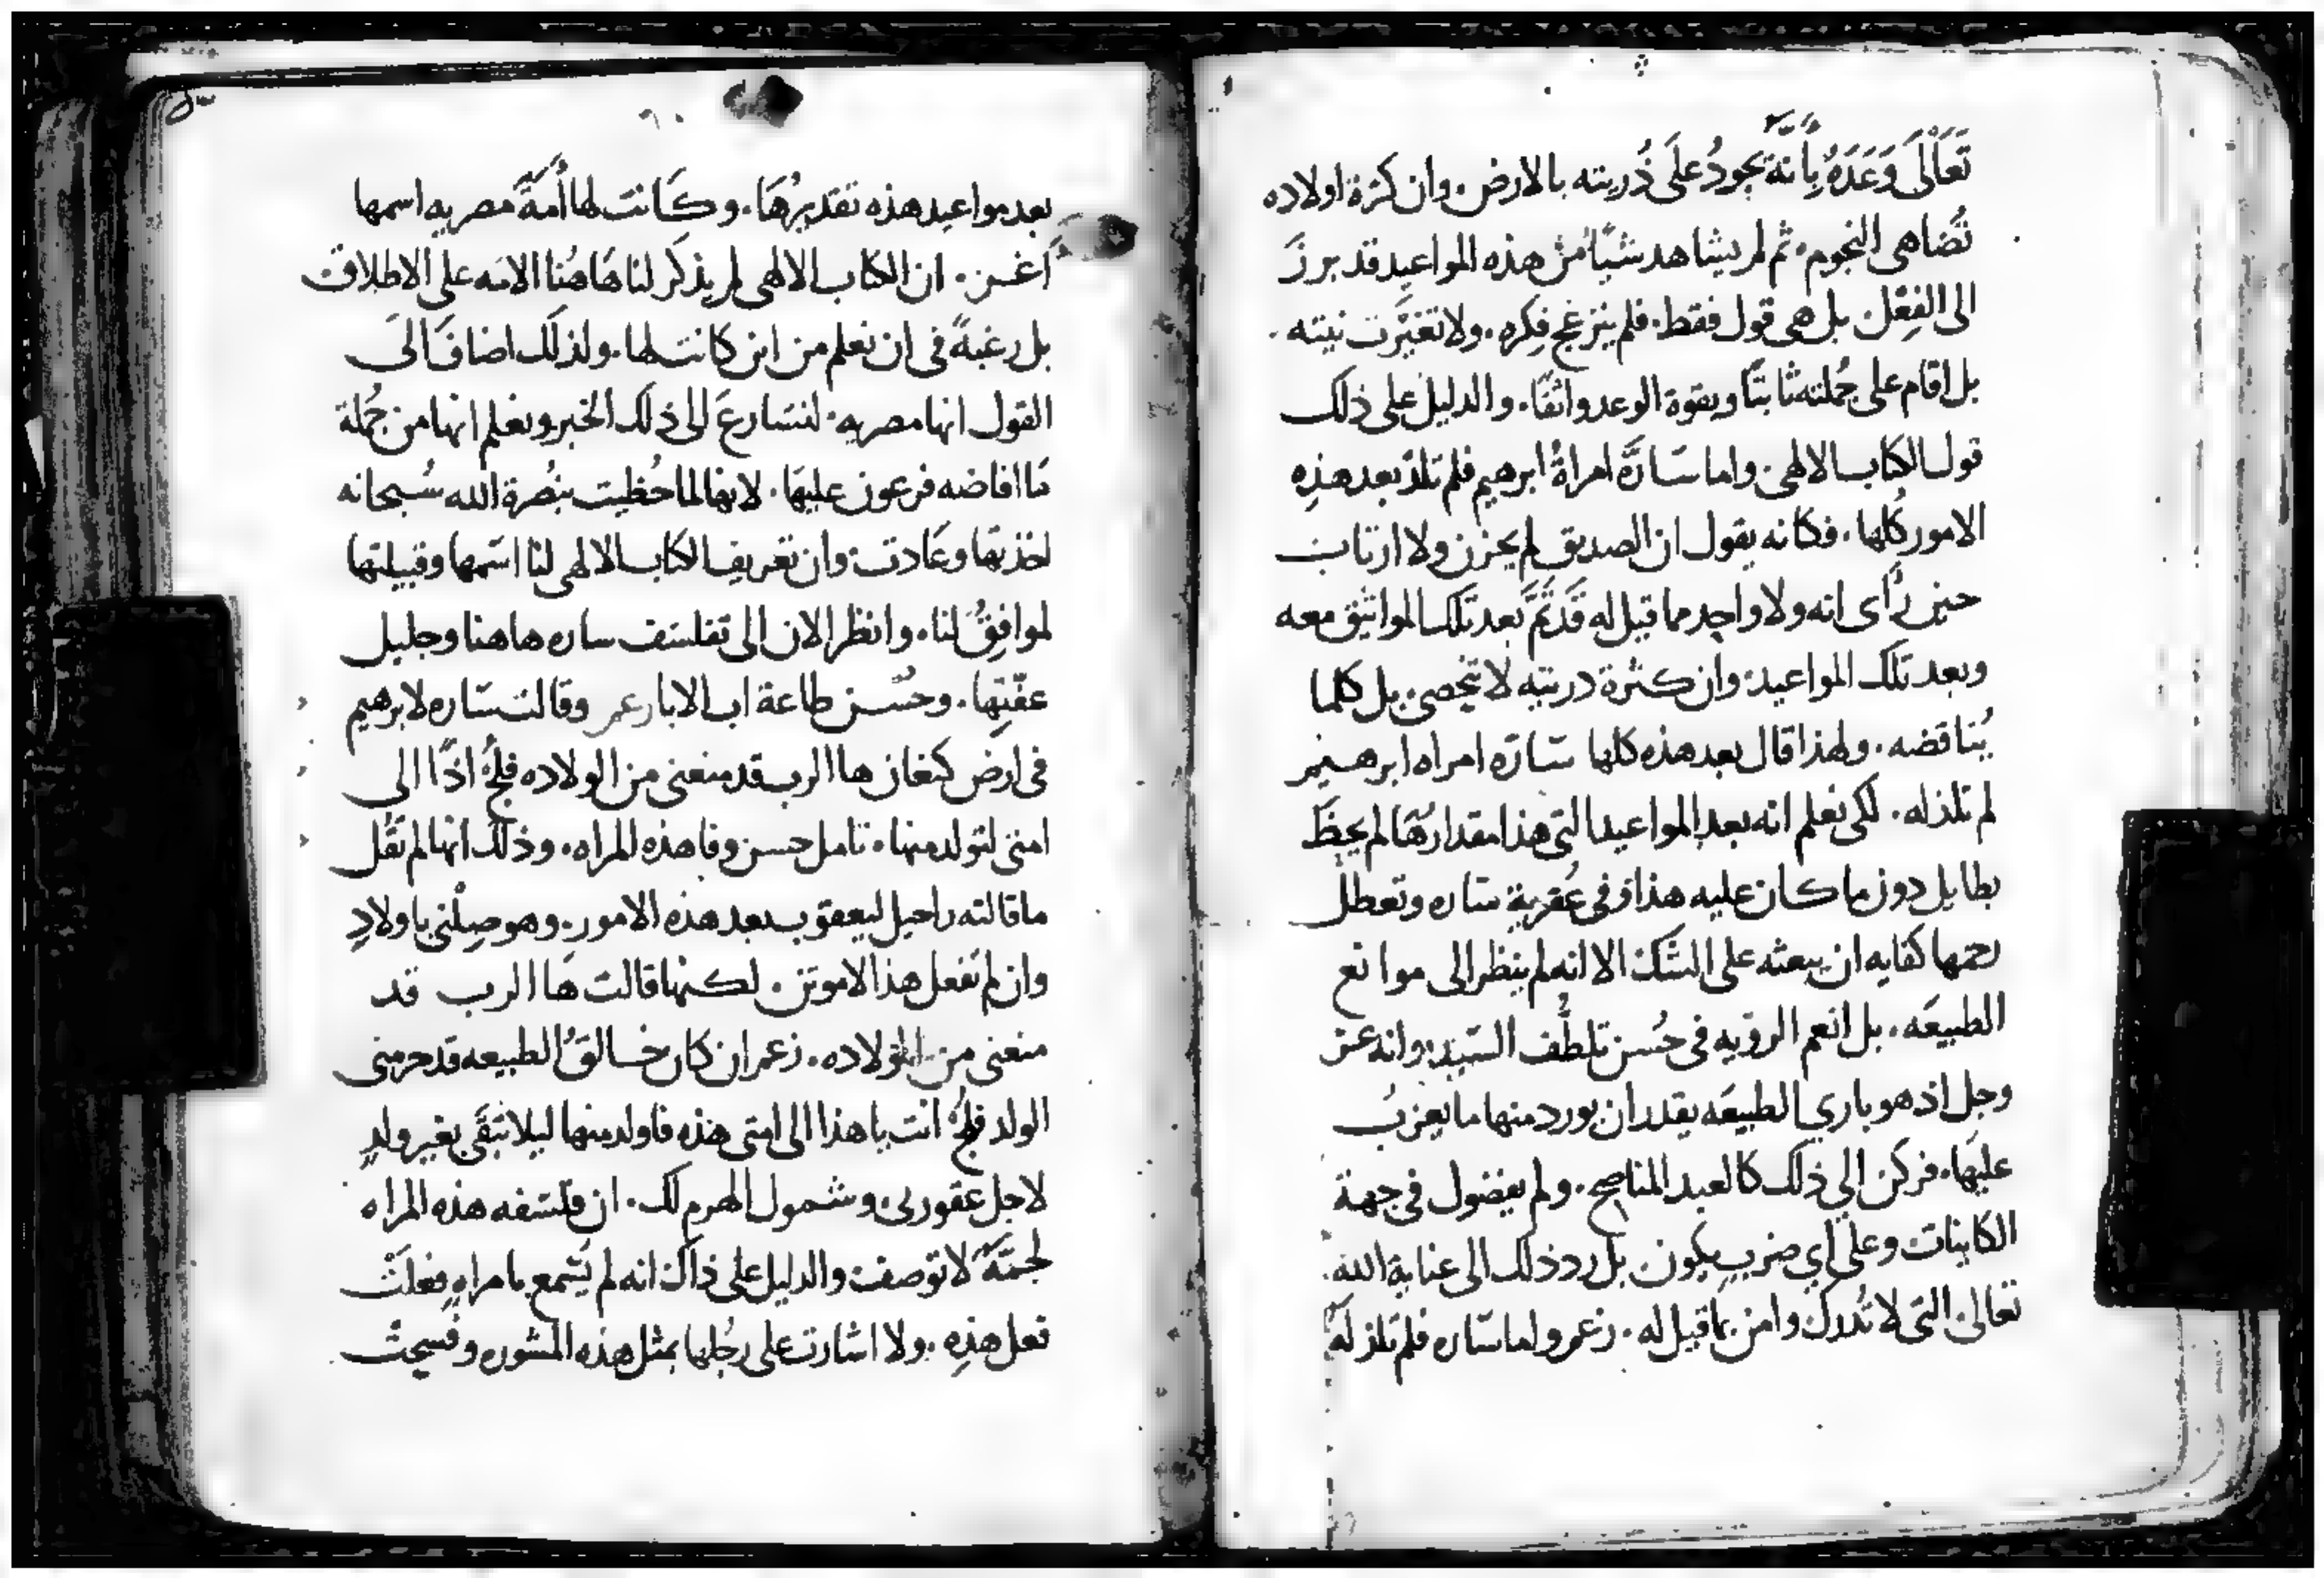 تَعَالَى وَعَدَهُ بِأنَّهُ يجودُ علَى ذُريته بالارض. وان كثرة اولاده
تُضاهى النجوم. ثم لم يشاهد شيًا من هذه المواعيد قد برزَ
الى الفِعْل بل هى قول فقط. فلم ينزعج فِكره. ولا تغيَّرت نيته.
بل اقام على جُملته ثابتًا وبقوة الوعد واثقًا. والدليل على ذلك
قول الكتاب الالهى. واما سَارَّه امراةُ ابرهيم فلم تلدْ بعد هذِه
الامور كُلها. فكانه يقول ان الصديق لم يحزن ولا ارتاب
حين رَأى انه ولا واحِد مما قيل له قَد تَمَّ بعد تلك المواثيق معه
وبعد تلك المواعيد وان كثرة دريته لا تحصى. بل كلما
يُناقضه. ولهذا قال بعد هذه كلها سَارَه امراه ابرهيم
لم تلد له. لكى نعلم انه بعد المواعيد التى هذا مقدارهَا لم يحظَ
بطايل دون ما كان عليه هذا وفى عُقرية ساره وتعطل
رحمها كفايه ان يبعثه على الشك الا انه لم ينظر الى موانع
الطبيعَه. بل انعم الرويه فى حُسن تلطُّف السَيد وانه عز
وجل اذ هو باري الطبيعَه يقدر ان يورد منها ما يعزبُ
عليهَا. فركن الي ذلك كالعبد المناصح. ولم يفضول فى جهة
الكاينات وعلى اي ضربٍ يكون بل رد ذلك الى عناية الله
تعالى التى لا تُدرك وامن بما قيل له. زعم واما سَاره فلم تلد له
٦٠
بعد مواعيد هذه تقديرُهَا. وكَانت لها أُمَةٌ مصريه اسمها
اغر. ان الكتاب الالهى لم يذكر لنا هَاهُنا الامه على الاطلاق
بل رغبةً فى ان نعلم من اين كانت لها. ولذلك اضافَ الَى
القول انها مصريه. لنتسارعَ الى ذلك الخبر ونعلم انها من جُملة
مَا افاضه فرعون عليهَا. لانها لما حُظيت بنُصرة الله سُبحانه
اخذتها وعَادت وان تعريف الكتاب الالهى لنا اسمها وقبيلتها
لموافِقٌ لنا. وانظر الان الى تفلسف ساره هاهنا وجليل
عفّتِها. وحُسن طاعة اب الابا زعم وقالت سَاره لابرهيم
فى ارض كنعان ها الرب قد منعنى من الولاده فلِجْ اذًا الى
امتى لتولد منها. تامل حسن وفا هذه المراه. وذلك انها لم تقل
ما قالته راحيل ليعقوب بعد هذه الامور. وهو صِلْنى باولادٍ
وان لم تفعل هذا لاموتن. لكنها قالت هَا الرب قد
منعنى من الولاده. زعم ان كان خالقُ الطبيعه قد حرمنى
الولد فلِجْ انت يا هذا الى امتى هذه فاولد منها ليلا تبقَى بغير ولدٍ
لاجل عقوريى وشمول الهرم لك. ان فلسفه هذه المراه
لجمَّة لا توصف والدليل على ذاك انه لم يُسمع بامراهٍ فعلَتْ
فعل هذِه. ولا اشارت على رجُلها بمثل هذه المشوره وفسحت